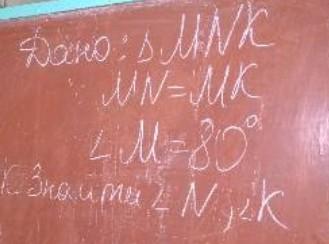 Дано: △ MNK
MN = MK
∠ M = 80°
Знайти ∠ N, ∠K